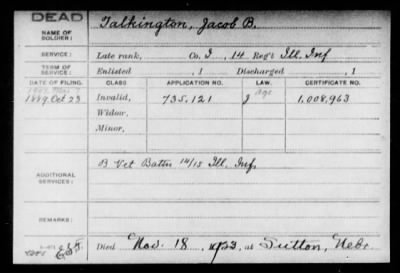 DEAD
NAME OF SOLDIER: Talkington, Jacob B.
SERVICE: Late rank, Co. I, 14 Reg't Ill. Inf
TERM OF SERVICE: Enlisted , 1 Discharged , 1
DATE OF FILING. CLASS. APPLICATION NO. LAW. CERTIFICATE NO.
1889 Oct 23 Invalid, 735.121 J age 1,008,963
Widow,
Minor,
ADDITIONAL SERVICES: B Vet Battn 14/15 Ill. Inf.
REMARKS:
Died Nov. 18, 1923, at Sutton, Nebr